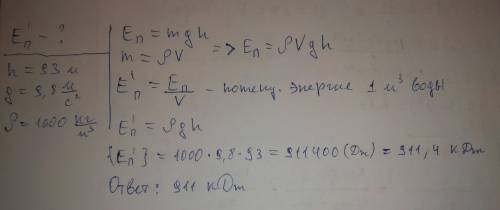 Eп' - ?
h = 93 м
g = 9,8 м/с²
ρ = 1000 кг/м³
Eп = mgh
m = ρV
=> Eп = ρVgh
Eп' = Eп/V - потенц. энергие 1 м³ воды
Eп' = ρgh
{Eп'} = 1000 · 9,8 · 93 = 911400 (Дж) = 911,4 кДж
Ответ: 911 кДж